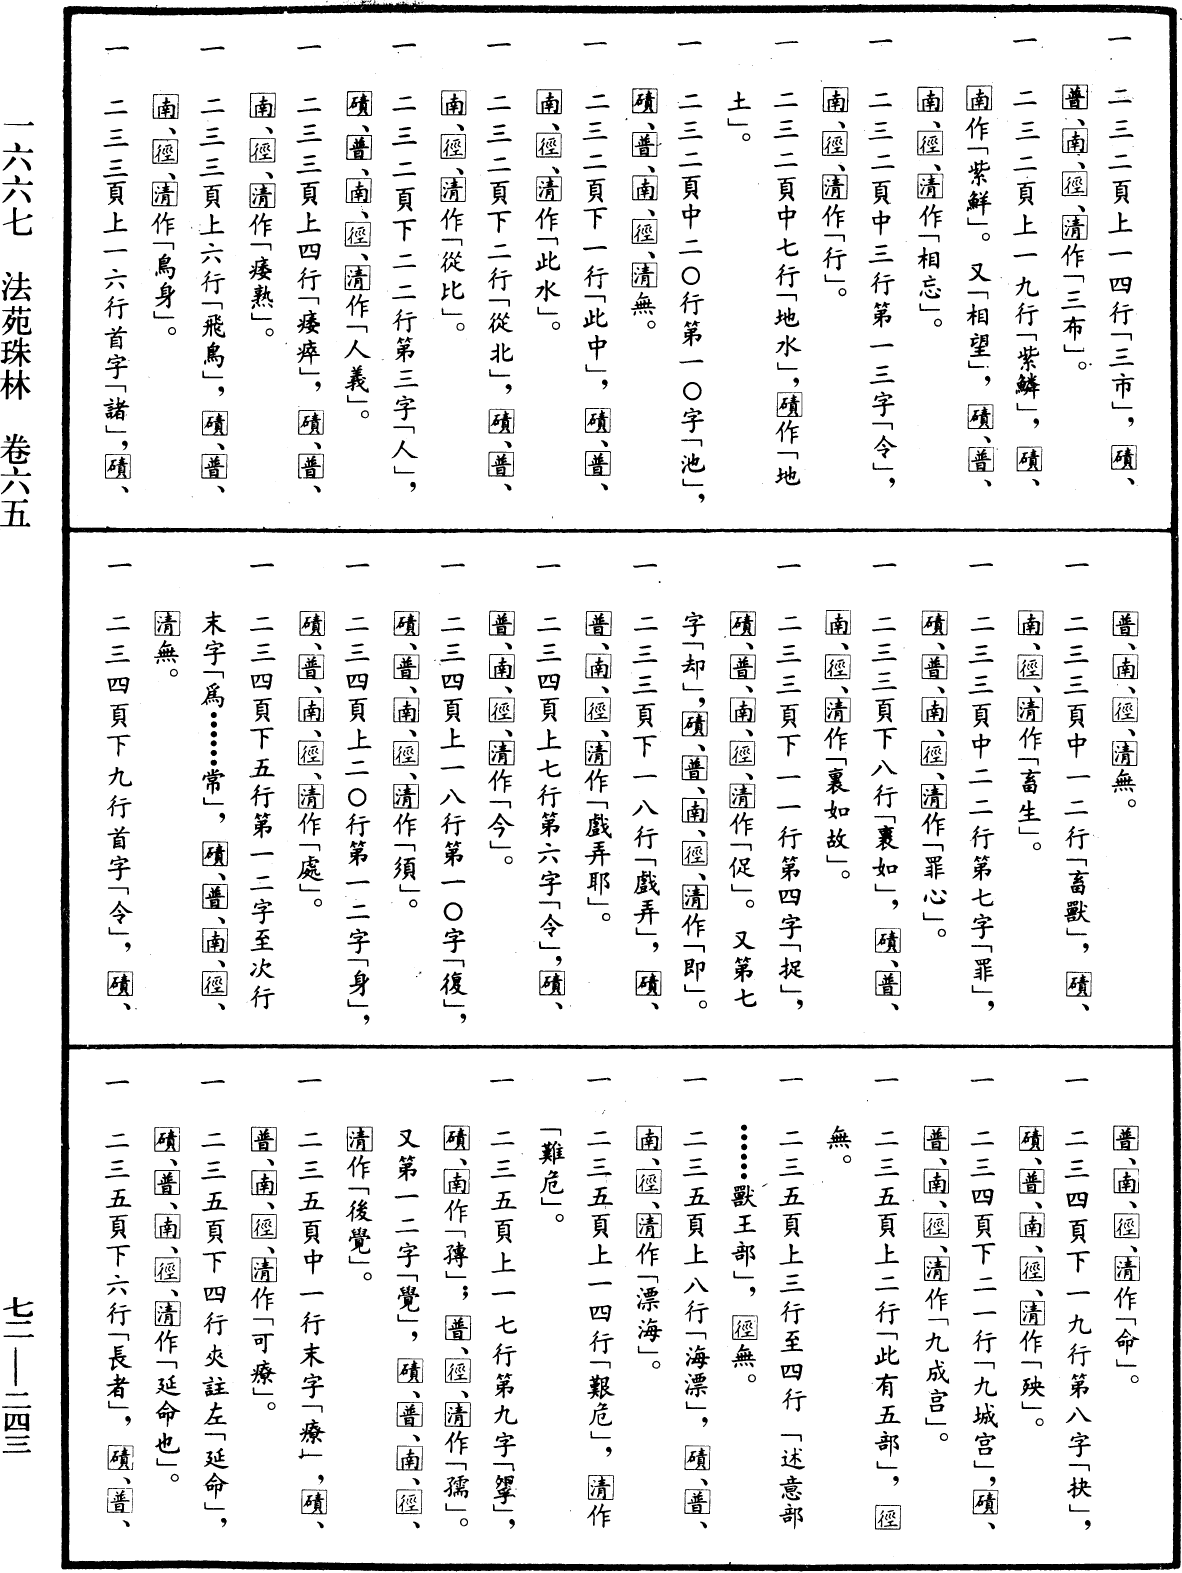 一 二三二頁上一四行「三市」，磧、
普、南、徑、清作「三布」。
一 二三二頁上一九行「紫鱗」，磧、
南作「紫鮮」。又「相望」，磧、普、
南、徑、清作「相忘」。
一 二三二頁中三行第一三字「令」，
南、徑、清作「行」。
一 二三二頁中七行「地水」，磧作「地
土」。
一 二三二頁中二〇行第一〇字「池」，
磧、普、南、徑、清無。
一 二三二頁下一行「此中」，磧、普、
南、徑、清作「此水」。
一 二三二頁下二行「從北」，磧、普、
南、徑、清作「從比」。
一 二三二頁下二二行第三字「人」，
磧、普、南、徑、清作「人義」。
一 二三三頁上四行「痿瘁」，磧、普、
南、徑、清作「痿熟」。
一 二三三頁上六行「飛鳥」，磧、普、
南、徑、清作「鳥身」。
一 二三三頁上一六行首字「諸」，磧、
普、南、徑、清無。
一 二三三頁中一二行「畜獸」，磧、
南、徑、清作「畜生」。
一 二三三頁中二二行第七字「罪」，
磧、普、南、徑、清作「罪心」。
一 二三三頁下八行「裏如」，磧、普、
南、徑、清作「裏如故」。
一 二三三頁下一一行第四字「捉」，
磧、普、南、徑、清作「促」。又第七
字「却」，磧、普、南、徑、清作「即」。
一 二三三頁下一八行「戲弄」，磧、
普、南、徑、清作「戲弄耶」。
一 二三四頁上七行第六字「令」，磧、
普、南、徑、清作「今」。
一 二三四頁上一八行第一〇字「復」，
磧、普、南、徑、清作「須」。
一 二三四頁上二〇行第一二字「身」，
磧、普、南、徑、清作「處」。
一 二三四頁下五行第一二字至次行
末字「爲……常」，磧、普、南、徑、
清無。
一 二三四頁下九行首字「令」，磧、
普、南、徑、清作「命」。
一 二三四頁下一九行第八字「抉」，
磧、普、南、徑、清作「殃」。
一 二三四頁下二一行「九城宫」，磧、
普、南、徑、清作「九成宫」。
一 二三五頁上二行「此有五部」，徑
無。
一 二三五頁上三行至四行「述意部
……獸王部」，徑無。
一 二三五頁上八行「海漂」，磧、普、
南、徑、清作「漂海」。
一 二三五頁上一四行「艱危」，清作
「難危」。
一 二三五頁上一七行第九字「㝅」，
磧、南作「䏝」；普、徑、清作「孺」。
又第一二字「覺」，磧、普、南、徑、
清作「後覺」。
一 二三五頁中一行末字「療」，磧、
普、南、徑、清作「可療」。
一 二三五頁下四行夾註左「延命」，
磧、普、南、徑、清作「延命也」。
一 二三五頁下六行「長者」，磧、普、
一六六七 法苑珠林 卷六五
七二—二四三